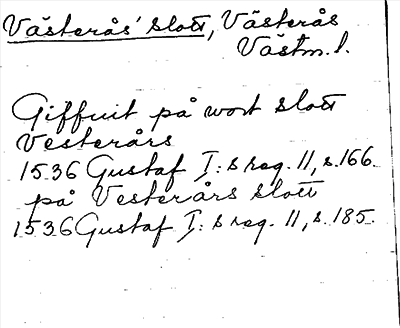 Västerås' slott, Västerås
Västm. l.
Giffuit på wort slott
Vesterårs
1536 Gustaf I:s reg. 11, s. 166.
på Vesterårs slott
1536 Gustaf I:s reg. 11, s. 185.